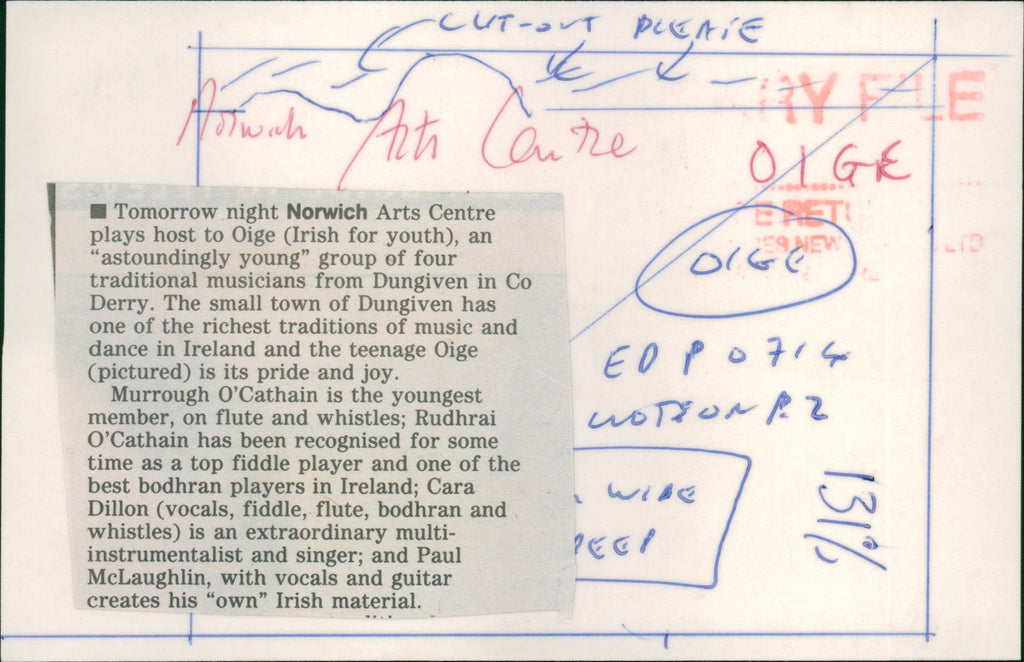 CUT-OUT PLEASE
Norwich Arts Centre
RY FILE
OIGE
E RET
ES NEW LTD
OIGE
■ Tomorrow night Norwich Arts Centre
plays host to Oige (Irish for youth), an
“astoundingly young” group of four
traditional musicians from Dungiven in Co
Derry. The small town of Dungiven has
one of the richest traditions of music and
dance in Ireland and the teenage Oige
(pictured) is its pride and joy.
Murrough O’Cathain is the youngest
member, on flute and whistles; Rudhrai
O’Cathain has been recognised for some
time as a top fiddle player and one of the
best bodhran players in Ireland; Cara
Dillon (vocals, fiddle, flute, bodhran and
whistles) is an extraordinary multi-
instrumentalist and singer; and Paul
McLaughlin, with vocals and guitar
creates his “own” Irish material.
EDP 0714
P.2
WIDE
DEEP
131%